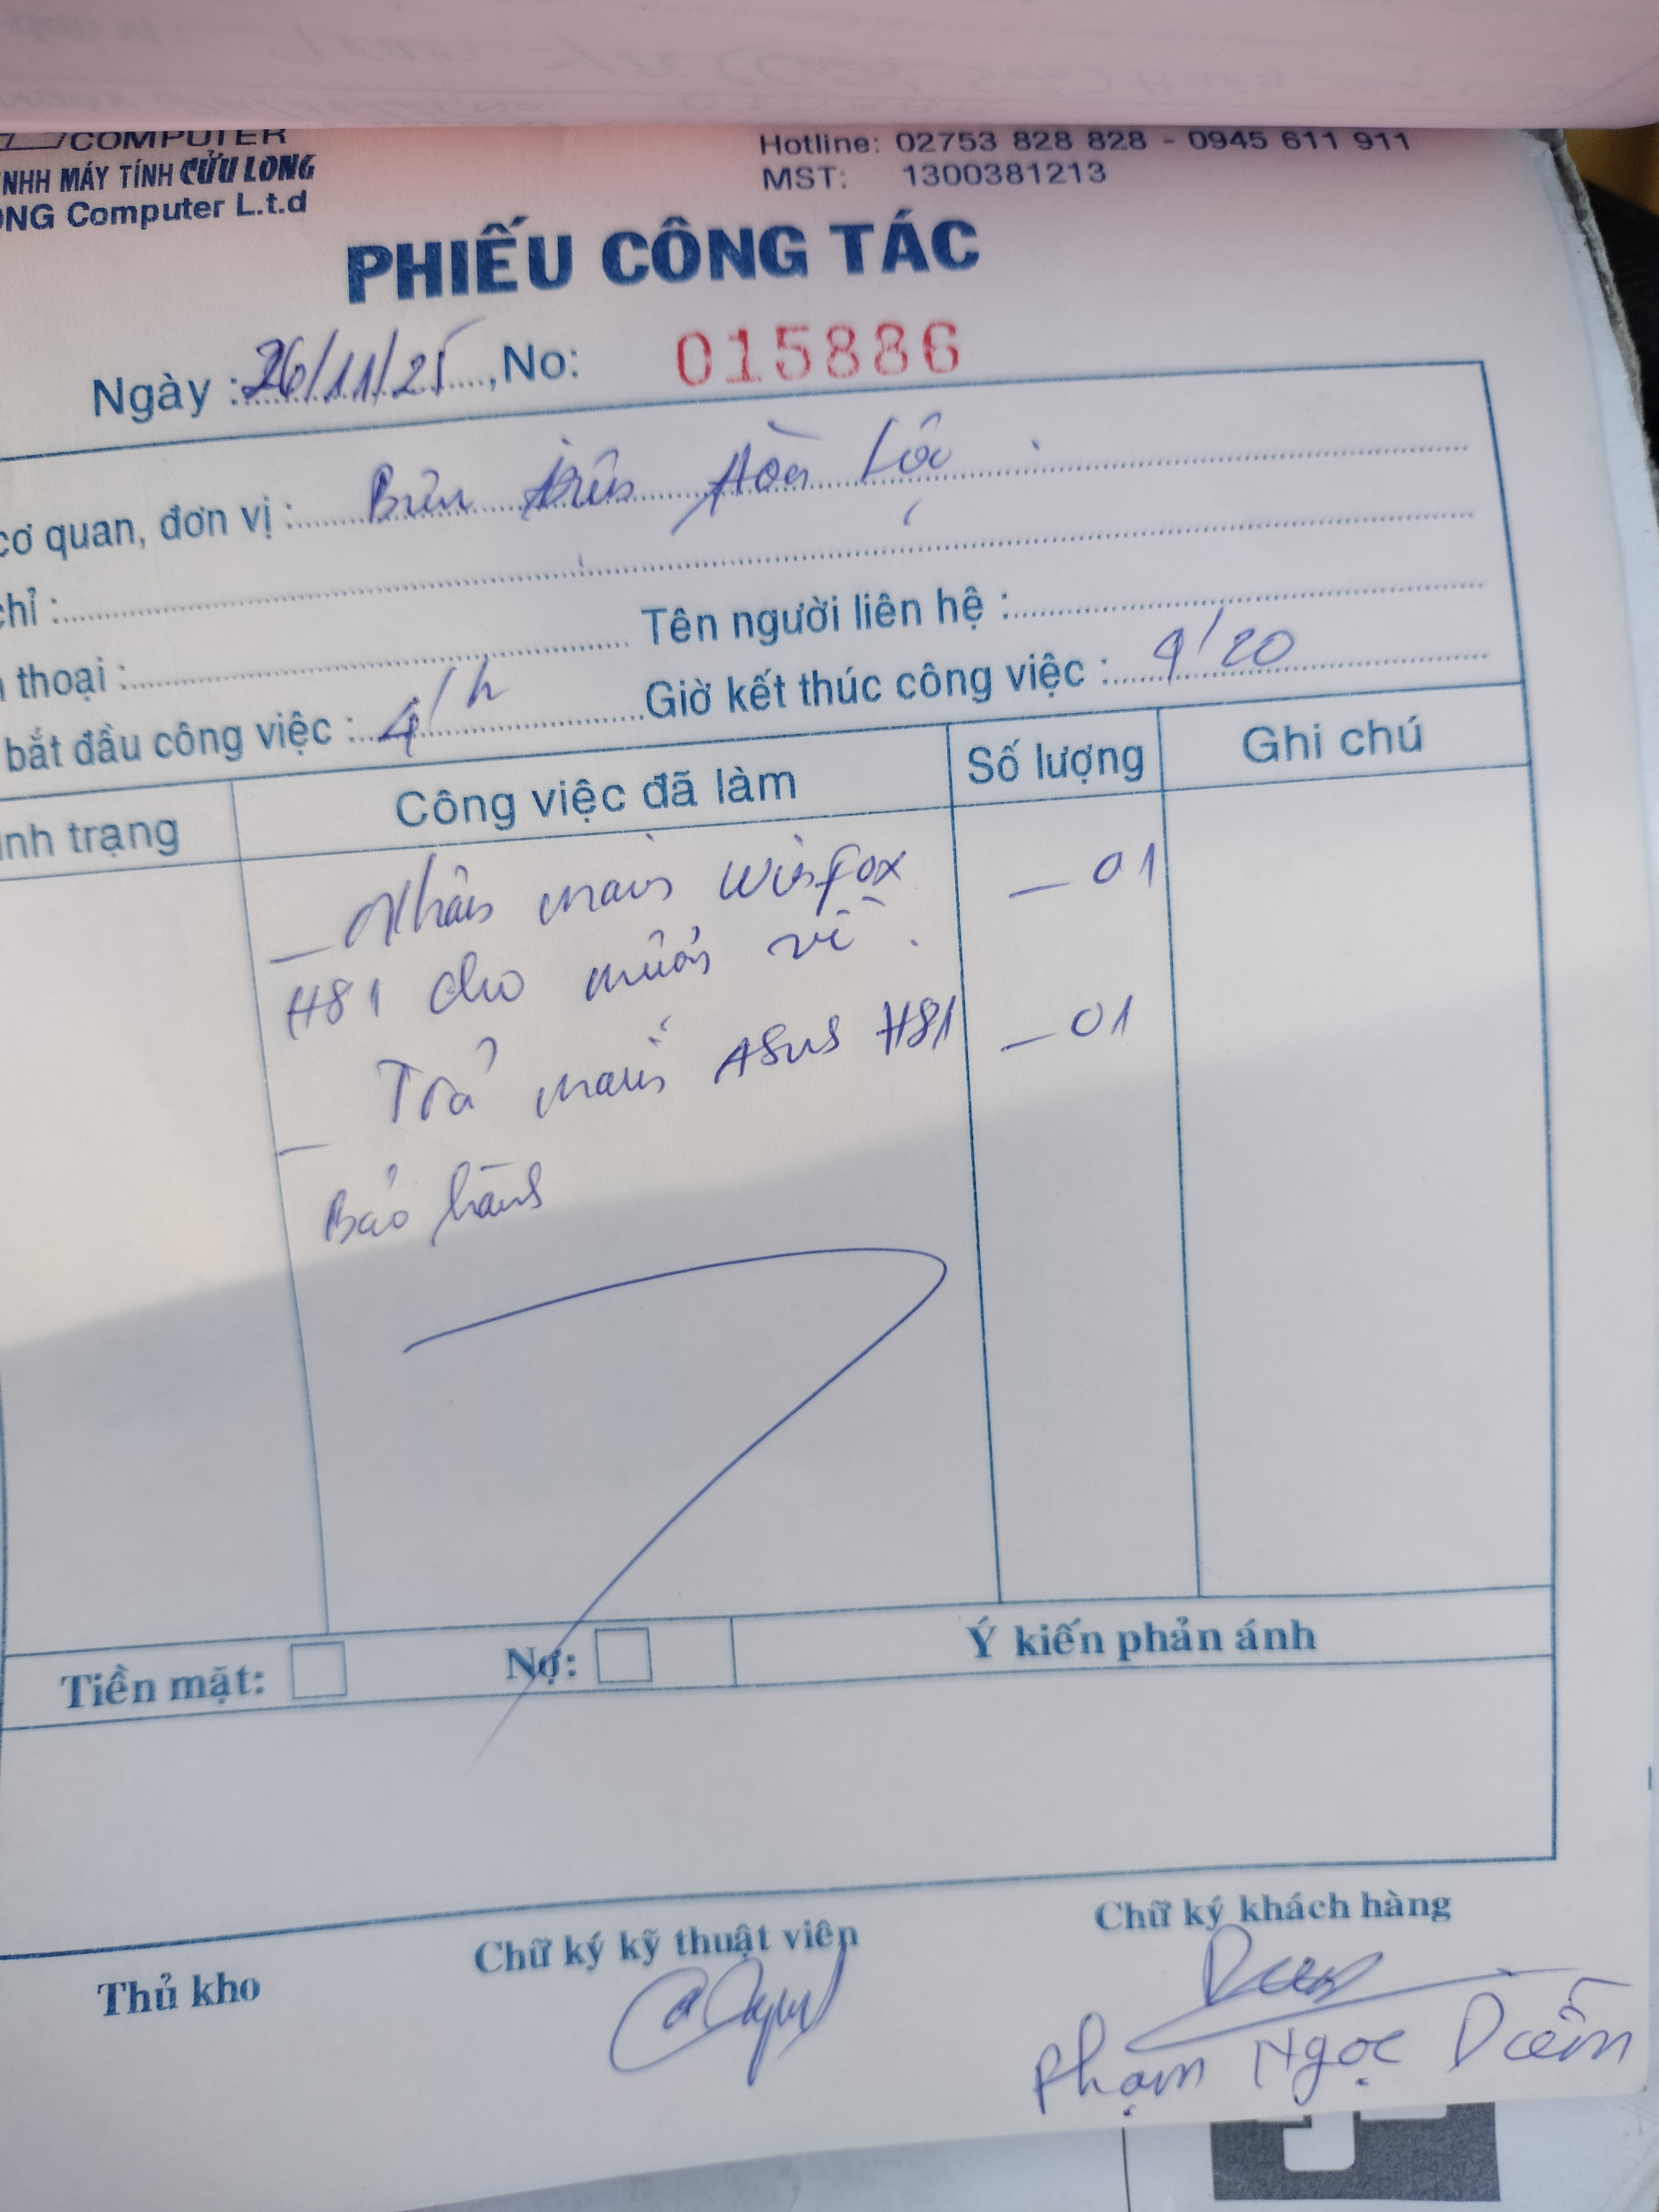 COMPUTER
NHH MÁY TÍNH CỬU LONG
ONG Computer L.t.d
Hotline: 02753 828 828 - 0945 611 911
MST: 1300381213
PHIẾU CÔNG TÁC
Ngày : 26/11/25, No: 015886
cơ quan, đơn vị : Hòa Lộc
chỉ :
thoại : Tên người liên hệ :
bắt đầu công việc : 4/h Giờ kết thúc công việc : 9/20
nh trạng Công việc đã làm Số lượng Ghi chú
_ Nhận main _ 01
H81 cho mượn về.
_ Trả main ASUS H81 _ 01
Bảo hành
Tiền mặt: Nợ: Ý kiến phản ánh
Thủ kho Chữ ký kỹ thuật viên Chữ ký khách hàng
Phạm Ngọc Diễm